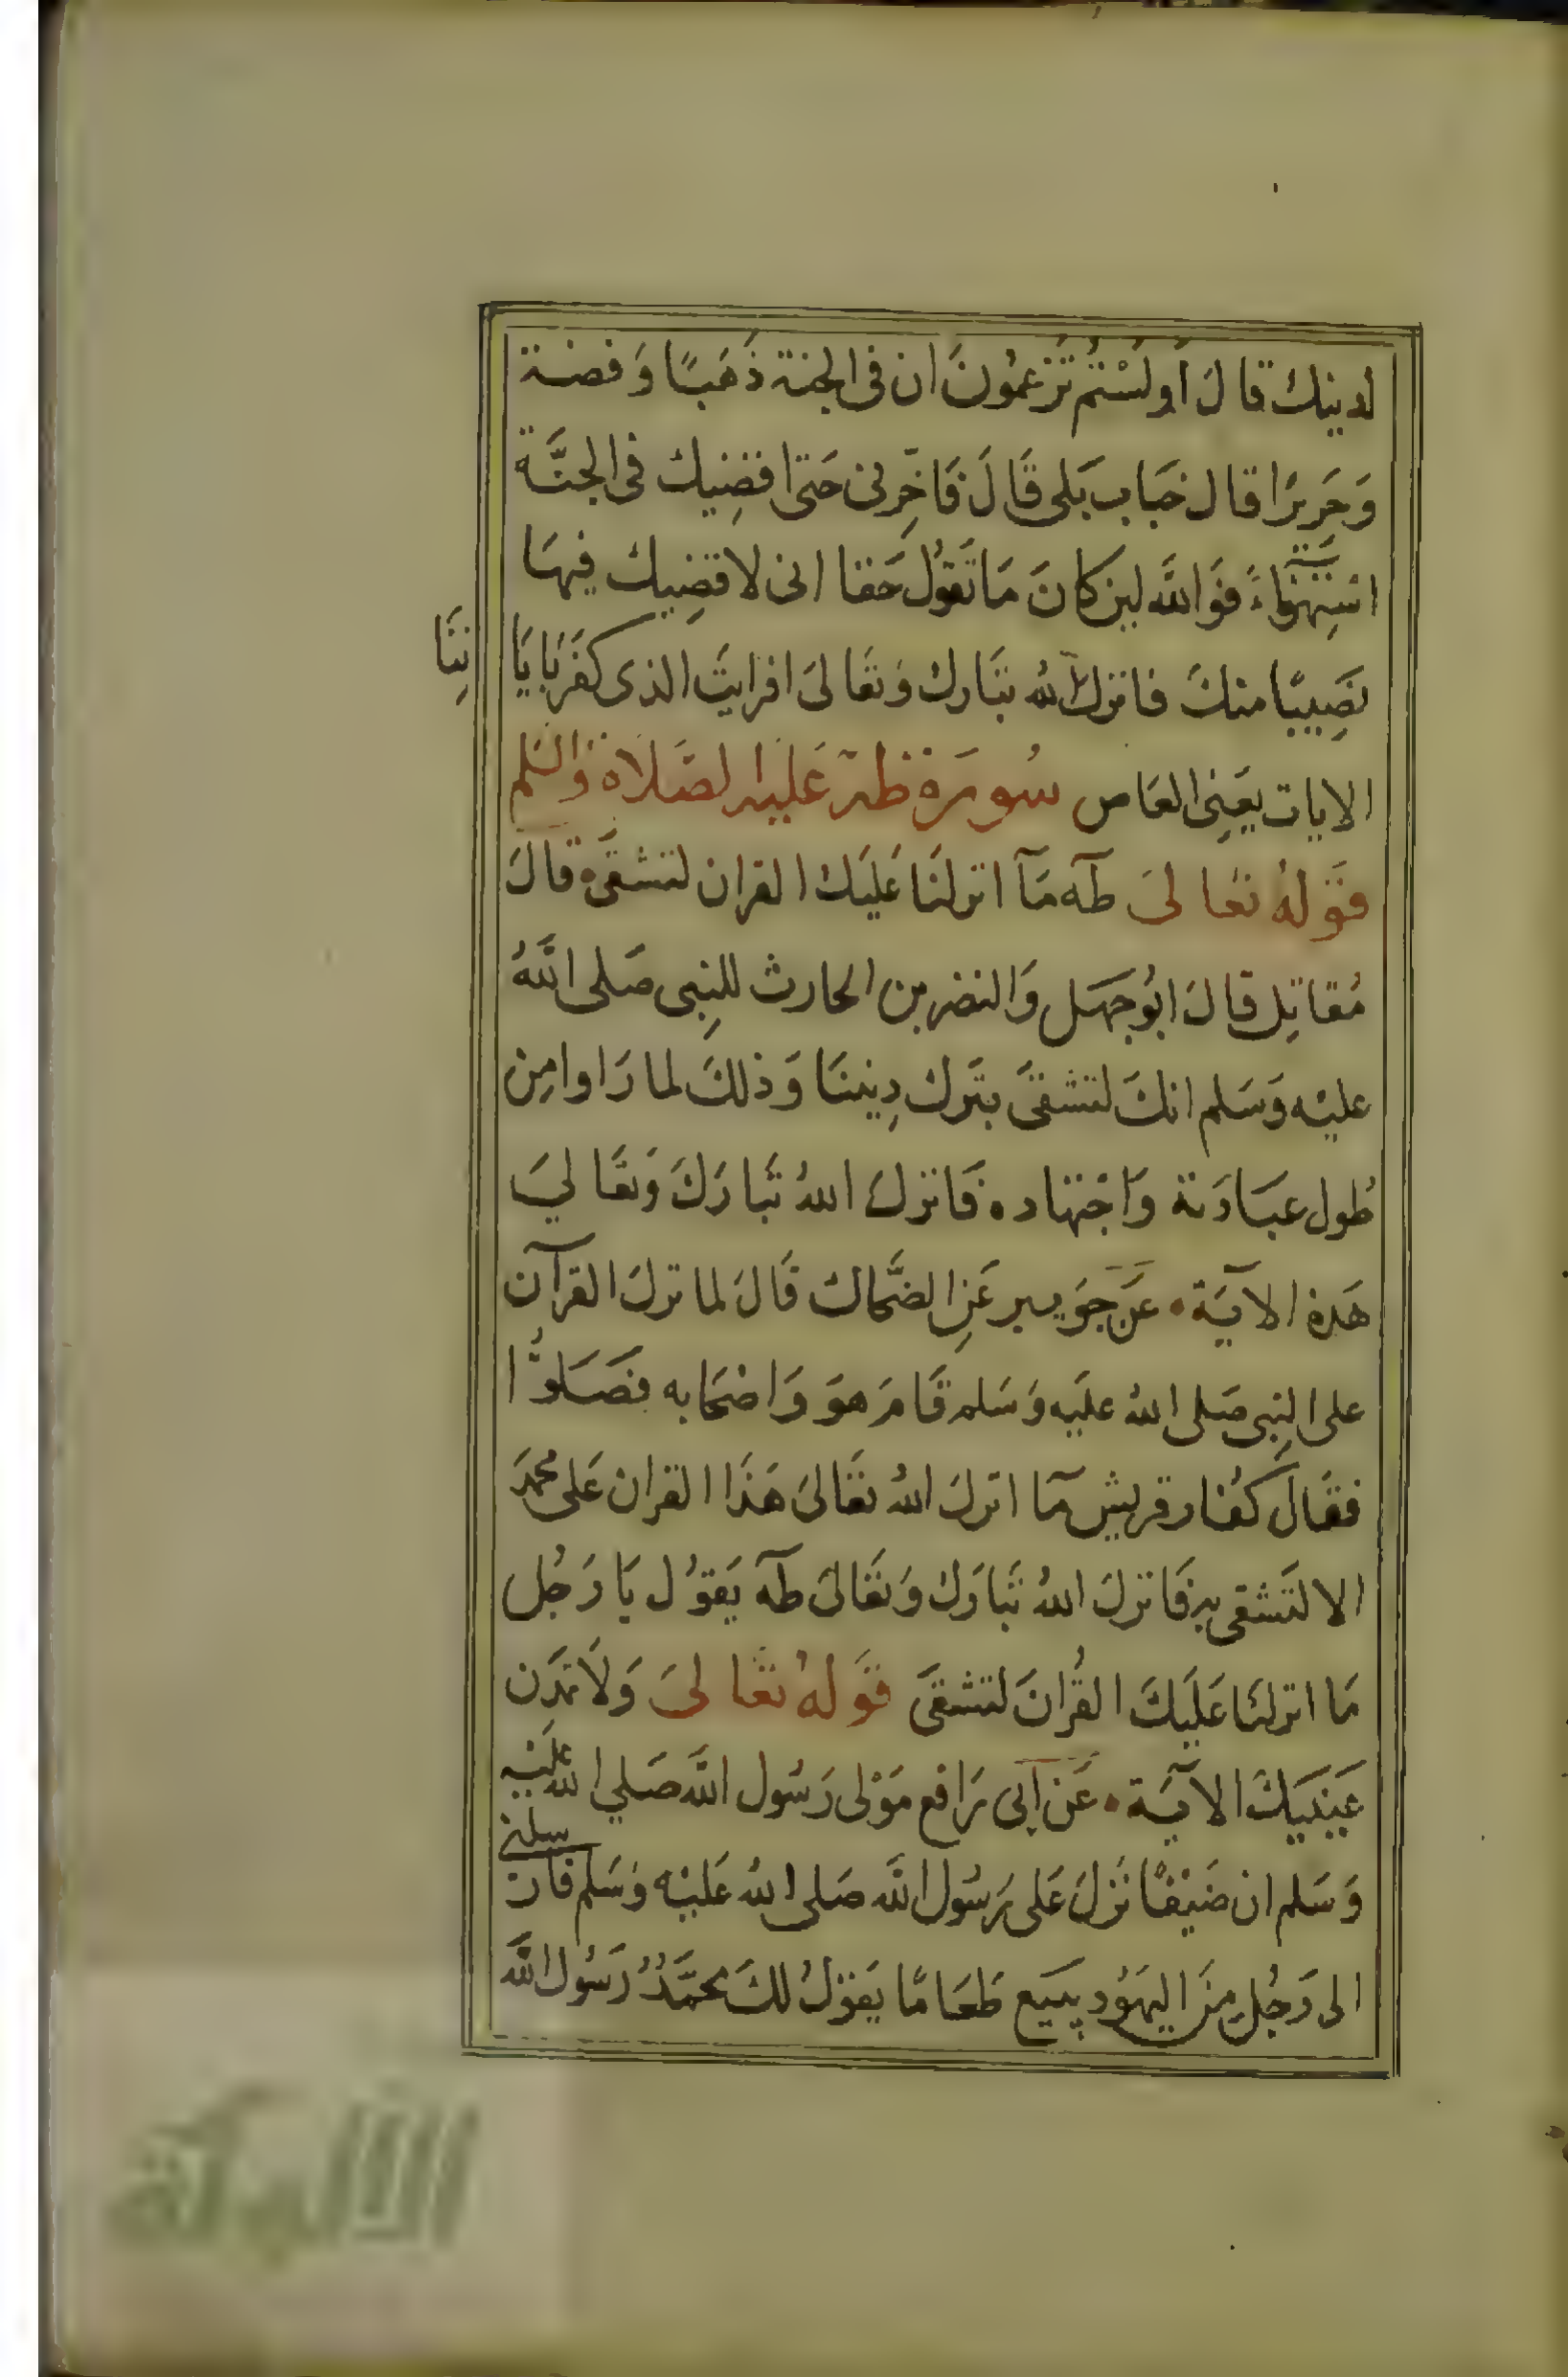 لدينك قال أولَسْتُم تَزعمُونَ ان فى الجنة ذَهَبًا وَفضة
وَحَرِيرًا قال خبَاب بَلى قَالَ فَاَخِّرنى حَتى اقضِيك فى الجنَّة
استِهزاءً فوَ الله لين كانَ مَا تَقوُل حَقا انى لاقضِيك فيهَا
نصِيبًا منكَ فانزل الله تبَارك وَتعَالىَ افرايتَ الذى كفرَ بايَا
تِنَا
الايات يعَنِى العَاص سُورة طه عَليه الصَّلاة وَالسَلم
قوَلهُ تعَالىَ طَه مَآ انزلنَا عَليَك القران لتشقىَ ه قالَ
مُقاتِل قالَ ابوُ جهَل وَالنضر بن الحارث للنِبى صَلى اللهُ
عليْه وَسَلم انكَ لتشقىَ بتَرك دِيننَا وَذلكَ لما رَاوا مِن
طُول عبَادَتة وَاجْتهاده فَانزلَ اللهُ تبَارَكَ وَتعَاليَ
هَذة الآيَة • عَن جوَيبر عَنِ الضَّحاك قَالَ لما نزلَ القرآن
على النِبى صَلى اللهُ عليَه وَسَلم قَامَ هوَ وَاصْحَابه فصَلوُّا
فقَالَ كفُار قريش مَآ انزلَ اللهُ تعَالىَ هَذَا القران عَلى محمَد
الا لتَشقى به فَانزلَ اللهُ تبَارَك وَتعَالىَ طَه يَقوُل يَا رَجُل
مَا انزلنَا عَليَكَ القُرانَ لتشقىَ قوَلهُ تعَالىَ وَلاَ تمَدن
عَينَيكَ الآيَة • عَن اَبى رَافع مَوْلى رَسُول الله صَلي الله عَليْه
وَسَلم ان ضَيْفًا نَزلَ عَلى رَسُول الله صَلى اللهُ عَليْه وَسَلم قال
الى رَجُلٍ مِنَ اليهَوُد يبَيع طَعَامًا يَقوُلُ لكَ محمَّدُ رَسُول الله
الألوكة